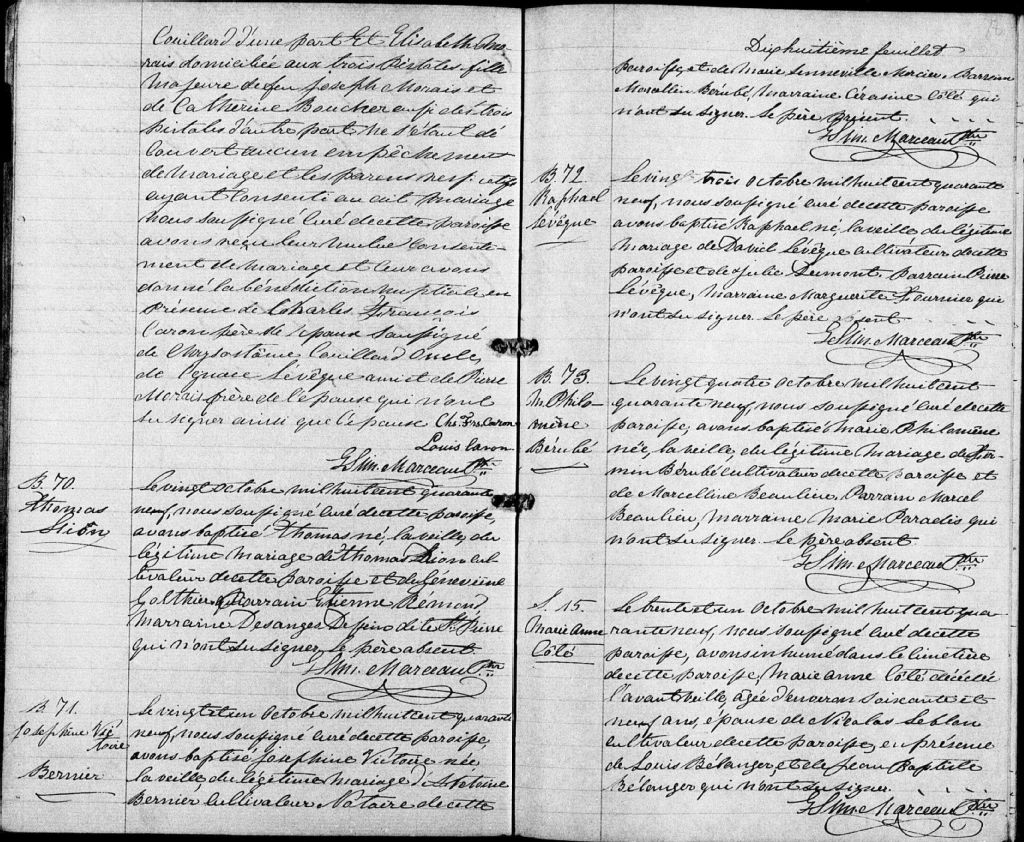 Couillard d'une part Et Elisabeth Mo
rais domiciliée aux trois Pistoles, fille
majeure de feu Joseph Morais et
de Catherine Boucher aussi des trois
Pistoles d'autre part ne s'étant dé
couvert aucun empêchement
de mariage et les parens
ayant consenti au dit mariage
nous soussigné curé de cette paroisse
avons reçu leur mutuel consente-
ment de mariage et leur avons
donné la bénédiction nuptiale en
présence de Charles François
Caron père de l'époux soussigné
de Chrysostôme Couillard Oncle,
de Ignace Lévêque ami et de Pierre
Morais frère de l'épouse qui n'ont
su signer ainsi que l'épouse Chs. Frs. Caron
Louis Caron
G. Sim. Marceau Ptre
B. 70.
Thomas
Sion
Le vingt octobre mil huit cent quarante
neuf, nous soussigné curé de cette paroisse,
avons baptisé Thomas né, la veille, du
légitime mariage de Thomas Sion cul
tivateur de cette paroisse et de Geneviève
Parrain Etienne Rémond,
Marraine Desanges dite St. Pierre
qui n'ont su signer, le père absent
G. Sim. Marceau Ptre
B. 71.
Josephine Vic
toire
Bernier
Le vingt et un octobre mil huit cent quarante
neuf, nous soussigné curé de cette paroisse,
avons baptisé Josephine Victoire née
la veille, du légitime mariage d'Antoine
Bernier cultivateur Notaire de cette
Dix huitième feuillet
paroisse et de Marie Senneville Mercier. Parrain
Marcellin Bérubé, Marraine Cérasine Côté qui
n'ont su signer. Le père présent.
G. Sim. Marceau Ptre
B. 72.
Raphael
Lévêque
Le vingt trois octobre mil huit cent quarante
neuf, nous soussigné curé de cette paroisse
avons baptisé Raphael né, la veille du légitime
mariage de David Lévêque cultivateur de cette
paroisse et de Julie Dumont. Parrain Pierre
Lévêque, Marraine Marguerite Fournier qui
n'ont su signer. Le père absent
G. Sim. Marceau Ptre
B. 73.
M. Philo-
mène
Bérubé
Le vingt quatre octobre mil huit cent
quarante neuf, nous soussigné curé de cette
paroisse, avons baptisé Marie Philomène
née, la veille, du légitime mariage de Fir-
min Bérubé cultivateur de cette paroisse et
de Marcelline Beaulieu. Parrain Marcel
Beaulieu, Marraine Marie Paradis qui
n'ont su signer. Le père absent
G. Sim. Marceau Ptre
S. 15.
Marie Anne
Côté
Le trente et un octobre mil huit cent qua
rante neuf, nous soussigné curé de cette
paroisse, avons inhumé dans le cimetière
de cette paroisse, Marie Anne Côté décédée
l'avant veille, agée d'environ soixante et
neuf ans, épouse de Nicolas Leblon
cultivateur de cette paroisse, en présence
de Louis Bélanger, et de Jean Baptiste
Bélanger qui n'ont su signer.
G. Sim. Marceau Ptre